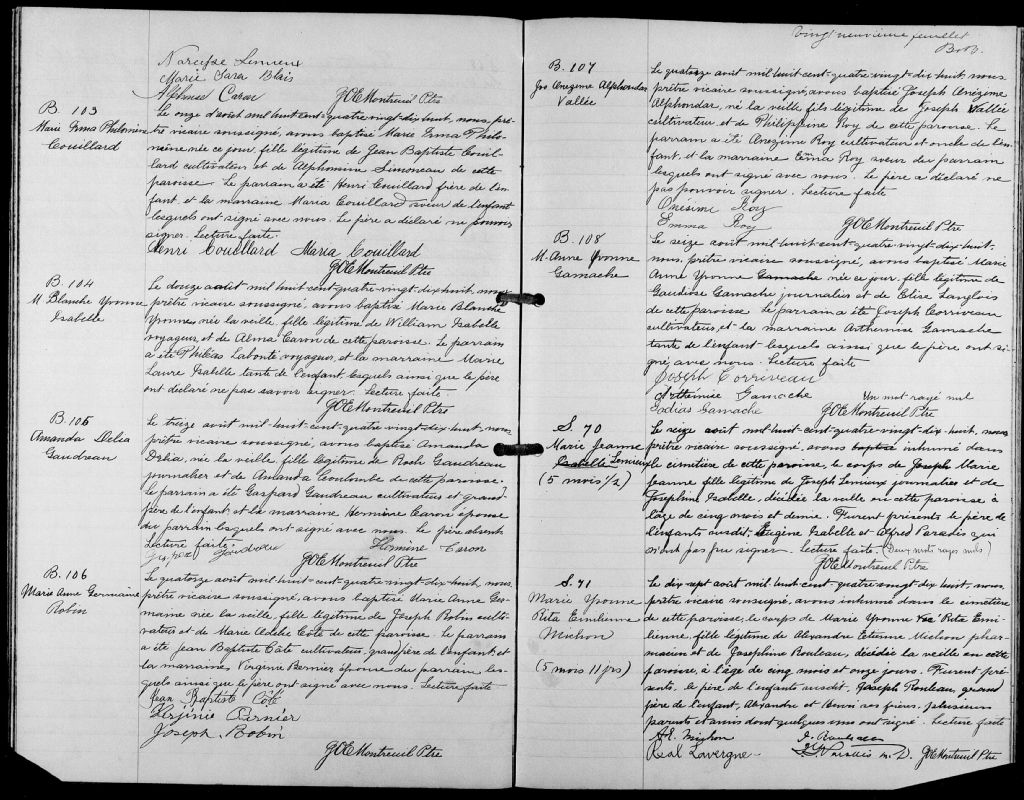 Narcisse Lemieux
Marie Sara Blais
Alphonse Caron JOE Montreuil Ptre
B. 103
Marie Irma Philomène
Couillard
Le onze d'août mil huit cent quatre vingt dix huit, nous, prê-
tre vicaire soussigné, avons baptisé Marie Irma Philo-
mène née ce jour, fille légitime de Jean Baptiste Couil-
lard cultivateur et de Alphonsine Simoneau de cette
paroisse. Le parrain a été Henri Couillard frère de l'en-
fant, et la marraine Maria Couillard soeur de l'enfant
lesquels ont signé avec nous. Le père a déclaré ne pouvoir
signer. Lecture faite.
Henri Couillard Maria Couillard
JOE Montreuil Ptre
B. 104
M. Blanche Yvonne
Isabelle
Le douze août mil huit cent quatre vingt dix huit, nous
prêtre vicaire soussigné, avons baptisé Marie Blanche
Yvonne, née la veille, fille légitime de William Isabelle
voyageur, et de Alma Caron de cette paroisse. Le parrain
a été Philéas Labonté voyageur, et la marraine Marie
Laure Isabelle tante de l'enfant lesquels ainsi que le père
ont déclaré ne pas savoir signer. Lecture faite.
JOE Montreuil Ptre
B. 105
Amanda Delia
Gaudreau
Le treize août mil huit-cent-quatre vingt-dix huit, nous
prêtre vicaire soussigné, avons baptisé Amanda
Delia, née la veille, fille légitime de Roch Gaudreau
journalier et de Amanda Coulombe de cette paroisse.
Le parrain a été Gaspard Gaudreau cultivateur et grand
père de l'enfant et la marraine Hermine Caron épouse
du parrain lesquels ont signé avec nous. Le père absent.
Lecture faite.
Gaudreau Hermine Caron
JOE Montreuil Ptre
B. 106
Marie Anne Germaine
Robin
Le quatorze août mil huit cent quatre vingt dix huit, nous,
prêtre vicaire soussigné, avons baptisé Marie Anne Ger-
maine née la veille, fille légitime de Joseph Robin culti-
vateur et de Marie Adèle Côté de cette paroisse. Le parrain
a été Jean Baptiste Côté cultivateur, grand père de l'enfant, et
la marraine, Virginie Bernier épouse du parrain, les-
quels ainsi que le père ont signé avec nous. Lecture faite
Jean Baptiste Côté
Virjinie Bernier
Joseph Robin
JOE Montreuil Ptre
Vingt neuvième feuillet
B. 107
Jos Onézime Alphondar
Vallée
Le quatorze août mil huit cent-quatre vingt-dix huit, nous
prêtre vicaire soussigné, avons baptisé Joseph Onézime
Alphondar, né la veille, fils légitime de Joseph Vallée
cultivateur, et de Philippine Roy de cette paroisse. Le
parrain a été Onézime Roy cultivateur et oncle de l'en-
fant, et la marraine Emma Roy soeur du parrain
lesquels ont signé avec nous. Le père a déclaré ne
pas pouvoir signer. Lecture faite
Onésime Roy
Emma Roy JOE Montreuil Ptre
B. 108
M. Anne Yvonne
Gamache
Le seize août mil-huit-cent-quatre-vingt-dix-huit-
nous, prêtre vicaire soussigné, avons baptisé Marie
Anne Yvonne Gamache née ce jour, fille légitime de
Gaudiose Gamache journalier et de Elise Langlois
de cette paroisse. Le parrain a été Joseph Corriveau
cultivateur, et la marraine Arthémise Gamache
tante de l'enfant lesquels ainsi que le père ont si-
gné avec nous. Lecture faite
Joseph Corriveau
Arthémise Gamache Un mot rayé nul
Godias Gamache JOE Montreuil Ptre
S. 70
Marie Jeanne
Isabelle Lemieux
(5 mois 1/2)
Le seize août mil huit-cent-quatre-vingt-dix-huit, nous
prêtre vicaire soussigné, avons baptisé inhumé dans
le cimetière de cette paroisse, le corps de Joseph Marie
Jeanne fille légitime de Joseph Lemieux journalier et de
Joséphine Isabelle, décédée la veille en cette paroisse à
l'âge de cinq mois et demie. Furent présents le père de
l'enfant susdit, Eugène Isabelle et Alfred Paradis qui
n'ont pas pu signer. Lecture faite. (Deux mots rayés nuls)
JOE Montreuil Ptre
S. 71
Marie Yvonne
Rita Emilienne
Michon
(5 mois 11 jrs)
Le dix sept août mil huit cent-quatre vingt dix huit, nous,
prêtre vicaire soussigné, avons inhumé dans le cimetière
de cette paroisse, le corps de Marie Yvonne Rita Emi-
lienne, fille légitime de Alexandre Etienne Michon phar-
macien et de Josephine Rouleau, décédée la veille en cette
paroisse, à l'âge de cinq mois et onze jours. Furent pré-
sents, le père de l'enfant susdit, Joseph Rouleau, grand
père de l'enfant, Alexandre et Henri ses frères, plusieurs
parents et amis dont quelques uns ont signé. Lecture faite
A. E. Michon J. Rouleau
Réal Lavergne Paradis M. D. JOE Montreuil Ptre